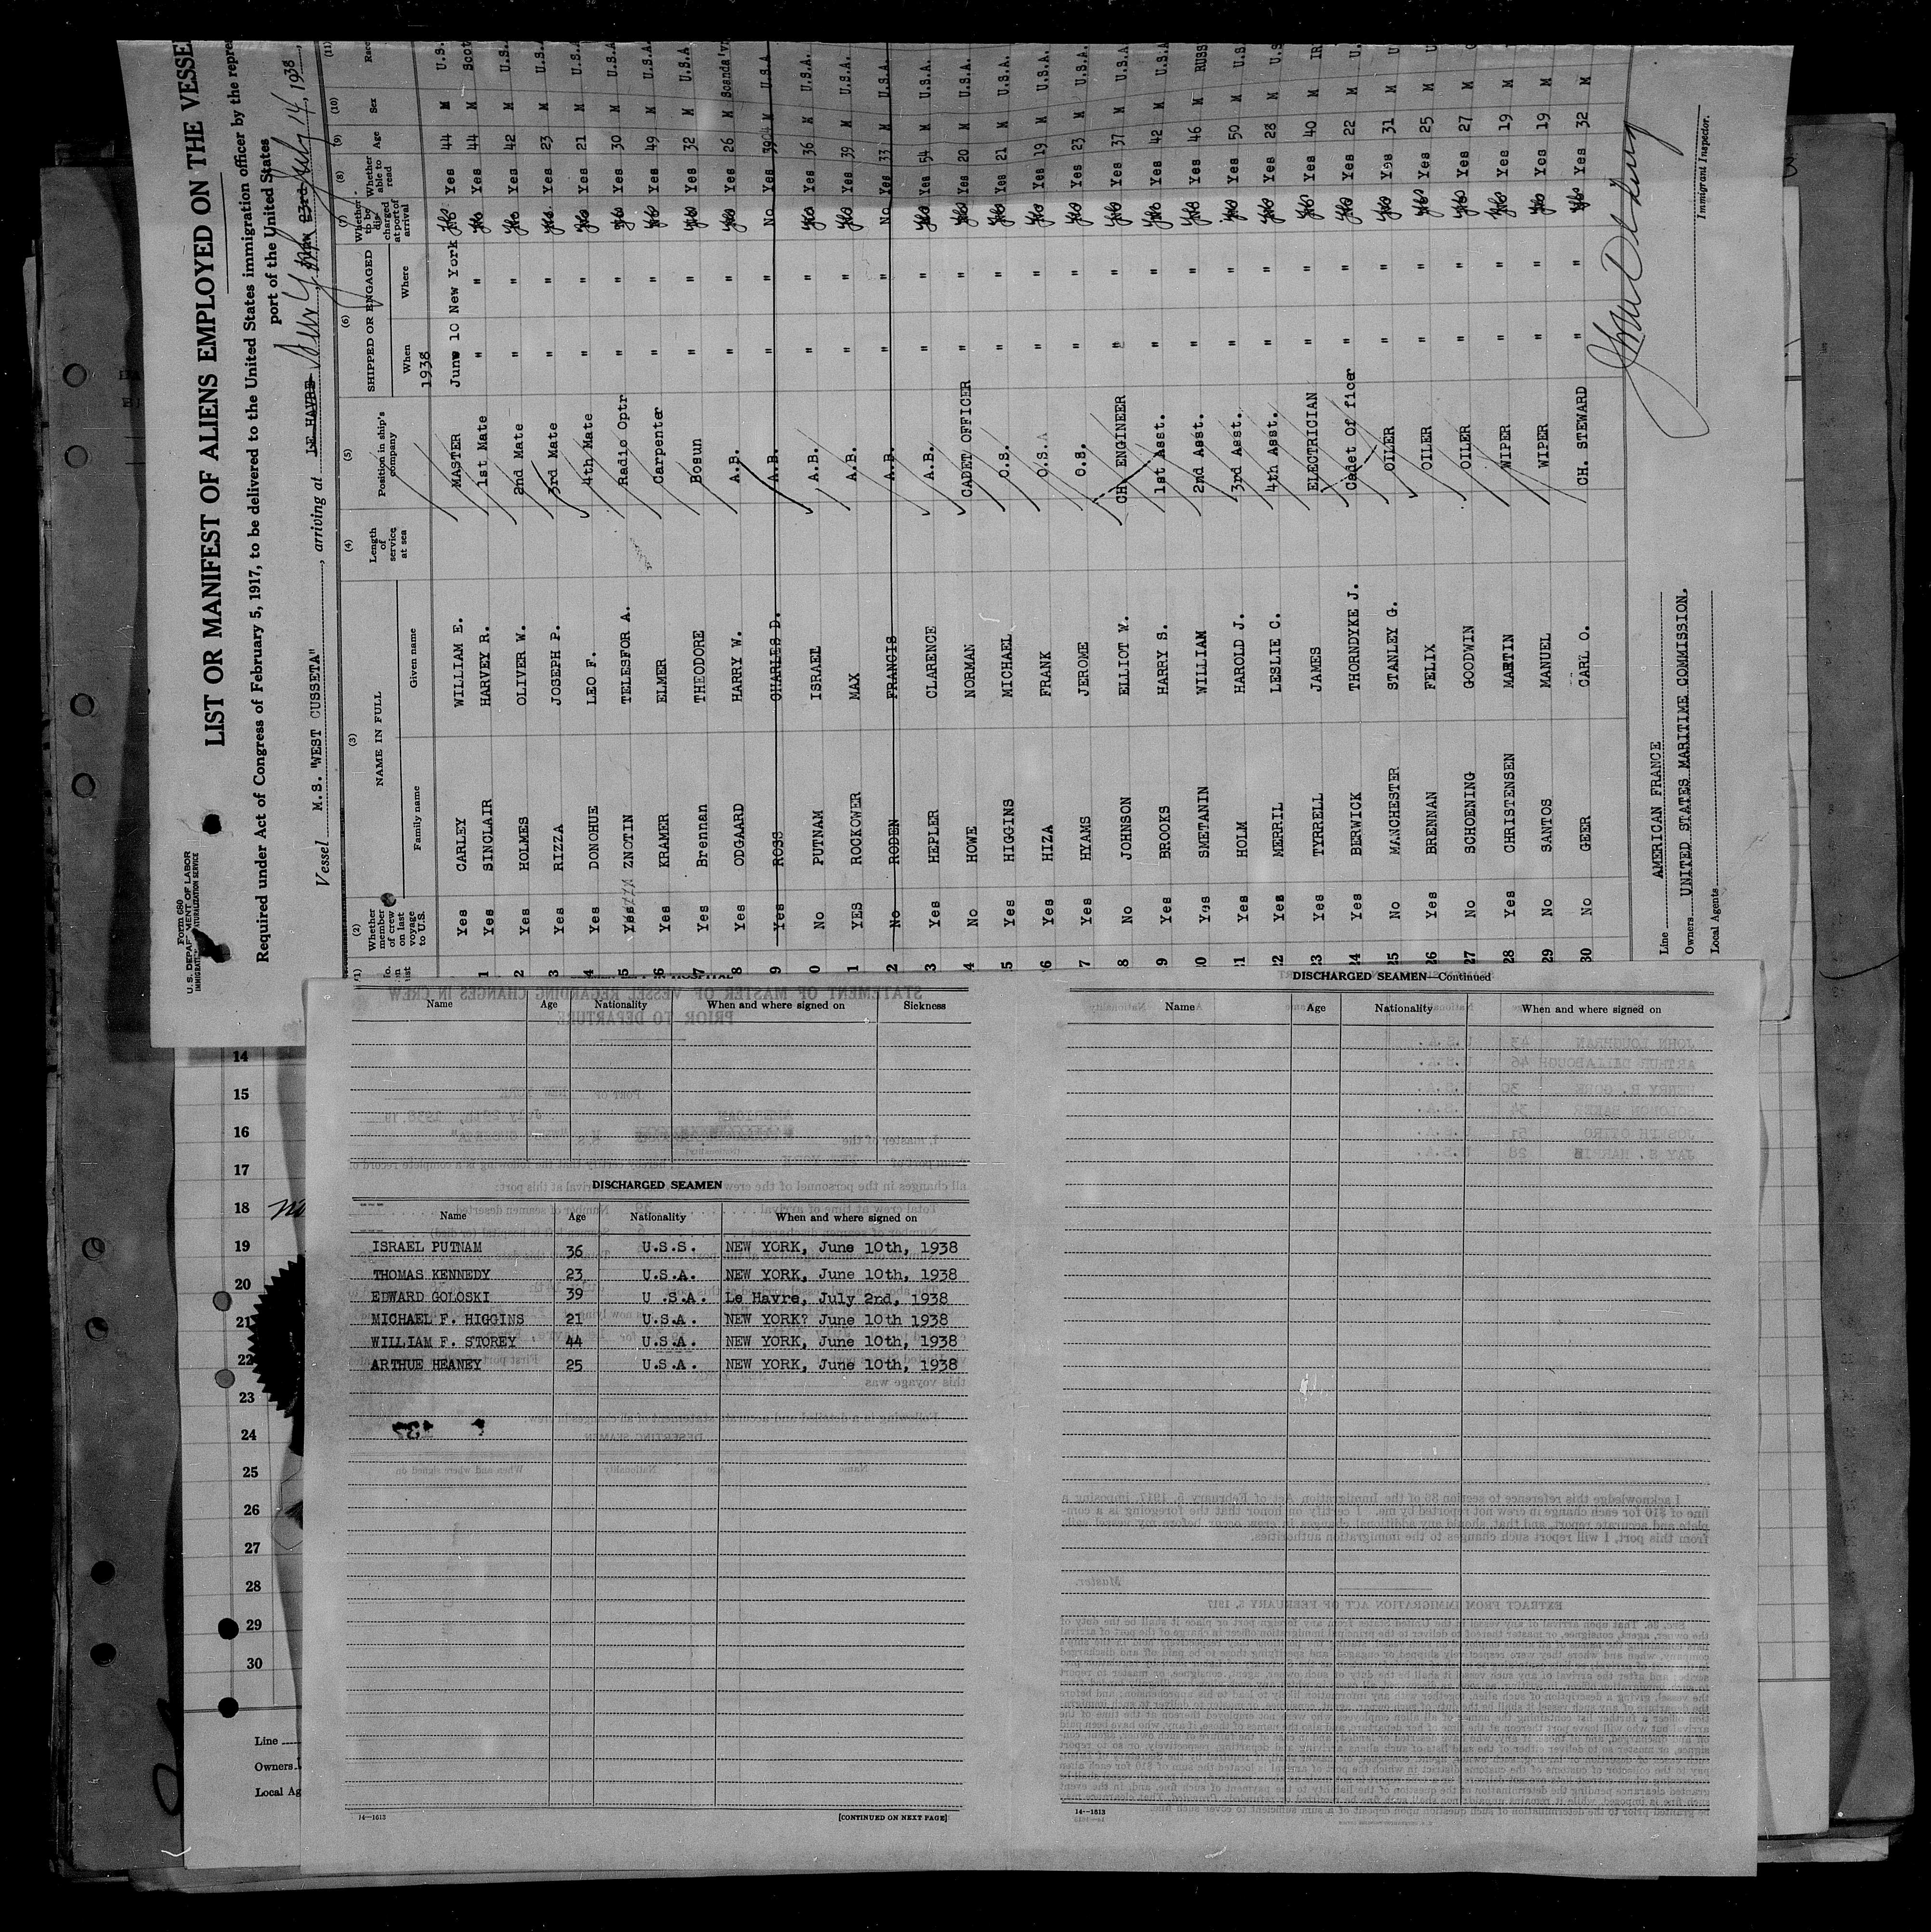 Form 680
U. S. DEPARTMENT OF LABOR
IMMIGRATION NATURALIZATION SERVICE
LIST OR MANIFEST OF ALIENS EMPLOYED ON THE VESSE
Required under Act of Congress of February 5, 1917, to be delivered to the United States immigration officer by the repre
port of the United States
Vessel M.S. "WEST CUSSETA", arriving at LE HAVRE July 14, 1938
(1) (2) (3) (4) (5) (6) (7) (8) (9) (10) (11)
Whether member of crew on last voyage to U.S. NAME IN FULL Length of service at sea Position in ship's company SHIPPED OR ENGAGED Whether to be discharged at port of arrival Whether able to read Age Sex Race
Family name Given name When Where
1938
Yes CARLEY WILLIAM E. MASTER June 10 New York Yes 44 M U.S.
1 Yes SINCLAIR HARVEY R. 1st Mate " " Yes 44 M Scot
2 Yes HOLMES OLIVER W. 2nd Mate " " Yes 42 M U.S.
3 Yes RIZZA JOSEPH P. 3rd Mate " " Yes 23 M U.S.
4 Yes DONOHUE LEO F. 4th Mate " " Yes 21 M U.S.A
5 Yes ZNOTIN TELESFOR A. Radio Optr " " Yes 30 M U.S.A
6 Yes KRAMER ELMER Carpenter " " Yes 49 M U.S.A.
7 Yes Brennan THEODORE Bosun " " Yes 32 M U.S.A
8 Yes ODGAARD HARRY W. A.B. " " Yes 26 M Scanda'vn
9 Yes ROSS CHARLES D. A.B. " " No Yes M U.S.A
0 No PUTNAM ISRAEL A.B. " " Yes 36 M U.S.A.
1 YES ROCKOWER MAX A.B. " " Yes 39 M U.S.A.
2 No RODEN FRANCIS A.B. " " No Yes 33 M U.S.A.
3 Yes HEPLER CLARENCE A.B. " " Yes 54 M U.S.A.
4 No HOWE NORMAN CADET OFFICER " " Yes 20 M U.S.A.
5 Yes HIGGINS MICHAEL O.S. " " Yes 21 M U.S.A.
6 Yes HIZA FRANK O.S.A " " Yes 19 M U.S.A.
7 Yes HYAMS JEROME O.S. " " Yes 23 M U.S.A.
8 No JOHNSON ELLIOT W. CH. ENGINEER " " Yes 37 M U.S.A
9 Yes BROOKS HARRY S. 1st Asst. " " Yes 42 M U.S.A
20 Yes SMETANIN WILLIAM 2nd Asst. " " Yes 46 M RUSS
21 Yes HOLM HAROLD J. 3rd Asst. " " Yes 50 M U.S.
22 Yes MERRIL LESLIE C. 4th Asst. " " Yes 28 M U.S
23 Yes TYRRELL JAMES ELECTRICIAN " " Yes 40 M IR
24 Yes BERWICK THORNDYKE J. Cadet Officer " " Yes 22 M U.
25 No MANCHESTER STANLEY G. OILER " " Yes 31 M U
26 Yes BRENNAN FELIX OILER " " Yes 25 M U
27 No SCHOENING GOODWIN OILER " " Yes 27 M
28 Yes CHRISTENSEN MARTIN WIPER " " Yes 19 M
29 No SANTOS MANUEL WIPER " " Yes 19 M
30 No GEER CARL O. CH. STEWARD " " Yes 32 M
Line AMERICAN FRANCE
Owners UNITED STATES MARITIME COMMISSION.
Local Agents
Immigrant Inspector.
Name Age Nationality When and where signed on Sickness
DISCHARGED SEAMEN
Name Age Nationality When and where signed on
ISRAEL PUTNAM 36 U.S.S. NEW YORK, June 10th, 1938
THOMAS KENNEDY 23 U.S.A. NEW YORK, June 10th, 1938
EDWARD GOLOSKI 39 U .S.A. Le Havre, July 2nd, 1938
MICHAEL F. HIGGINS 21 U.S.A. NEW YORK? June 10th 1938
WILLIAM F. STOREY 44 U.S.A. NEW YORK, June 10th, 1938
ARTHUE HEANEY 25 U.S.A. NEW YORK, June 10th, 1938
14—1613 [CONTINUED ON NEXT PAGE]
DISCHARGED SEAMEN—Continued
Name Age Nationality When and where signed on
14—1613
14
15
16
17
18
19
20
21
22
23
24
25
26
27
28
29
30
Line
Owners
Local Ag